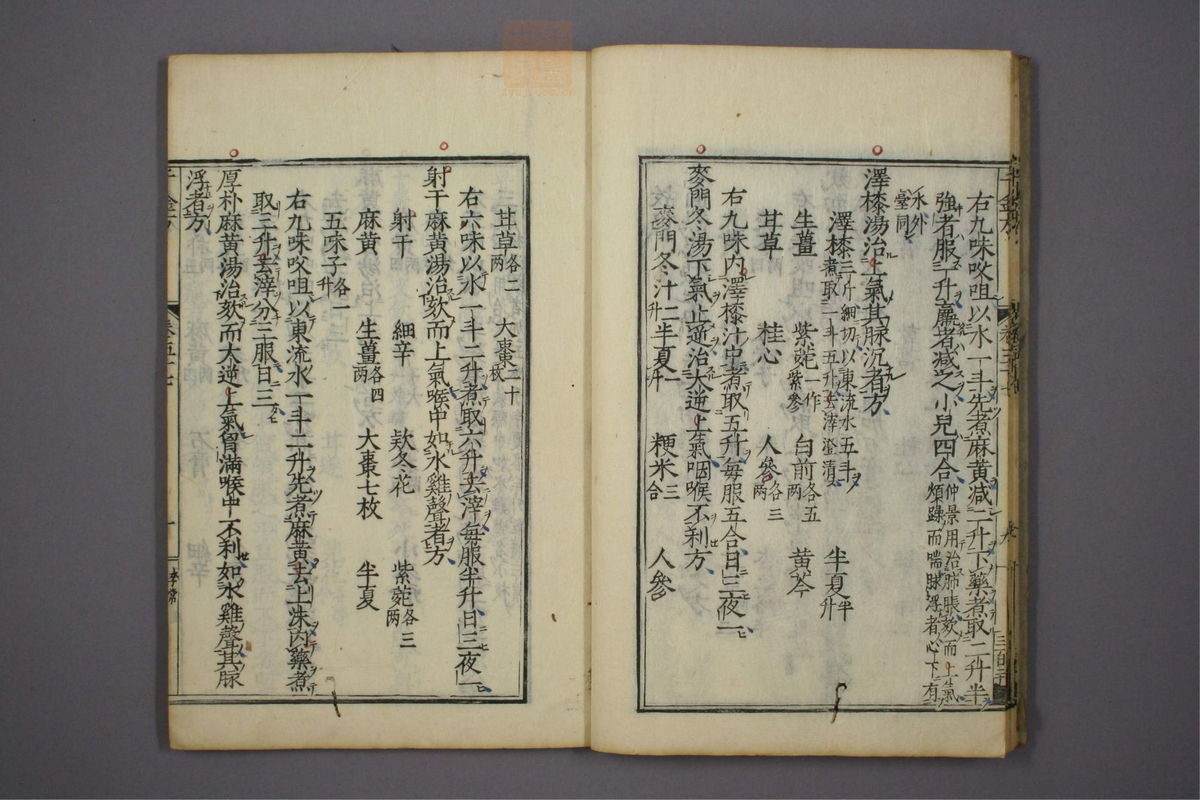 右九味㕮咀以水一斗先煮麻黄減二升下藥煮取二升半
強者服一升羸者減之小兒四合仲景用治肺脹欬而上氣煩躁而喘脉浮者心下有
水外臺同
澤漆湯治上氣其脉沉者方
澤漆三斤細切以東流水五斗煮取一斗五升去滓澄清 半夏半升
生薑 紫菀一作紫參 白前各五兩 黄芩
甘草 桂心 人參各三兩
右九味内澤漆汁中煮取五升每服五合日三夜一
麥門冬湯下氣止逆治大逆上氣咽喉不利方
麥門冬汁二升 半夏一升 粳米三合 人參
甘草各二兩 大棗二十枚
右六味以水一斗二升煮取六升去滓每服半升日三夜一
射干麻黄湯治欬而上氣喉中如水雞聲者方
射干 細辛 款冬花 紫菀各三兩
麻黄 生薑各四兩 大棗七枚 半夏
五味子各一升
右九味㕮咀以東流水一斗二升先煮麻黄去上沫内藥煮
取三升去滓分三服日三
厚朴麻黄湯治欬而大逆上氣胷滿喉中不利如水雞聲其脉
浮者方
千金方
卷五十七